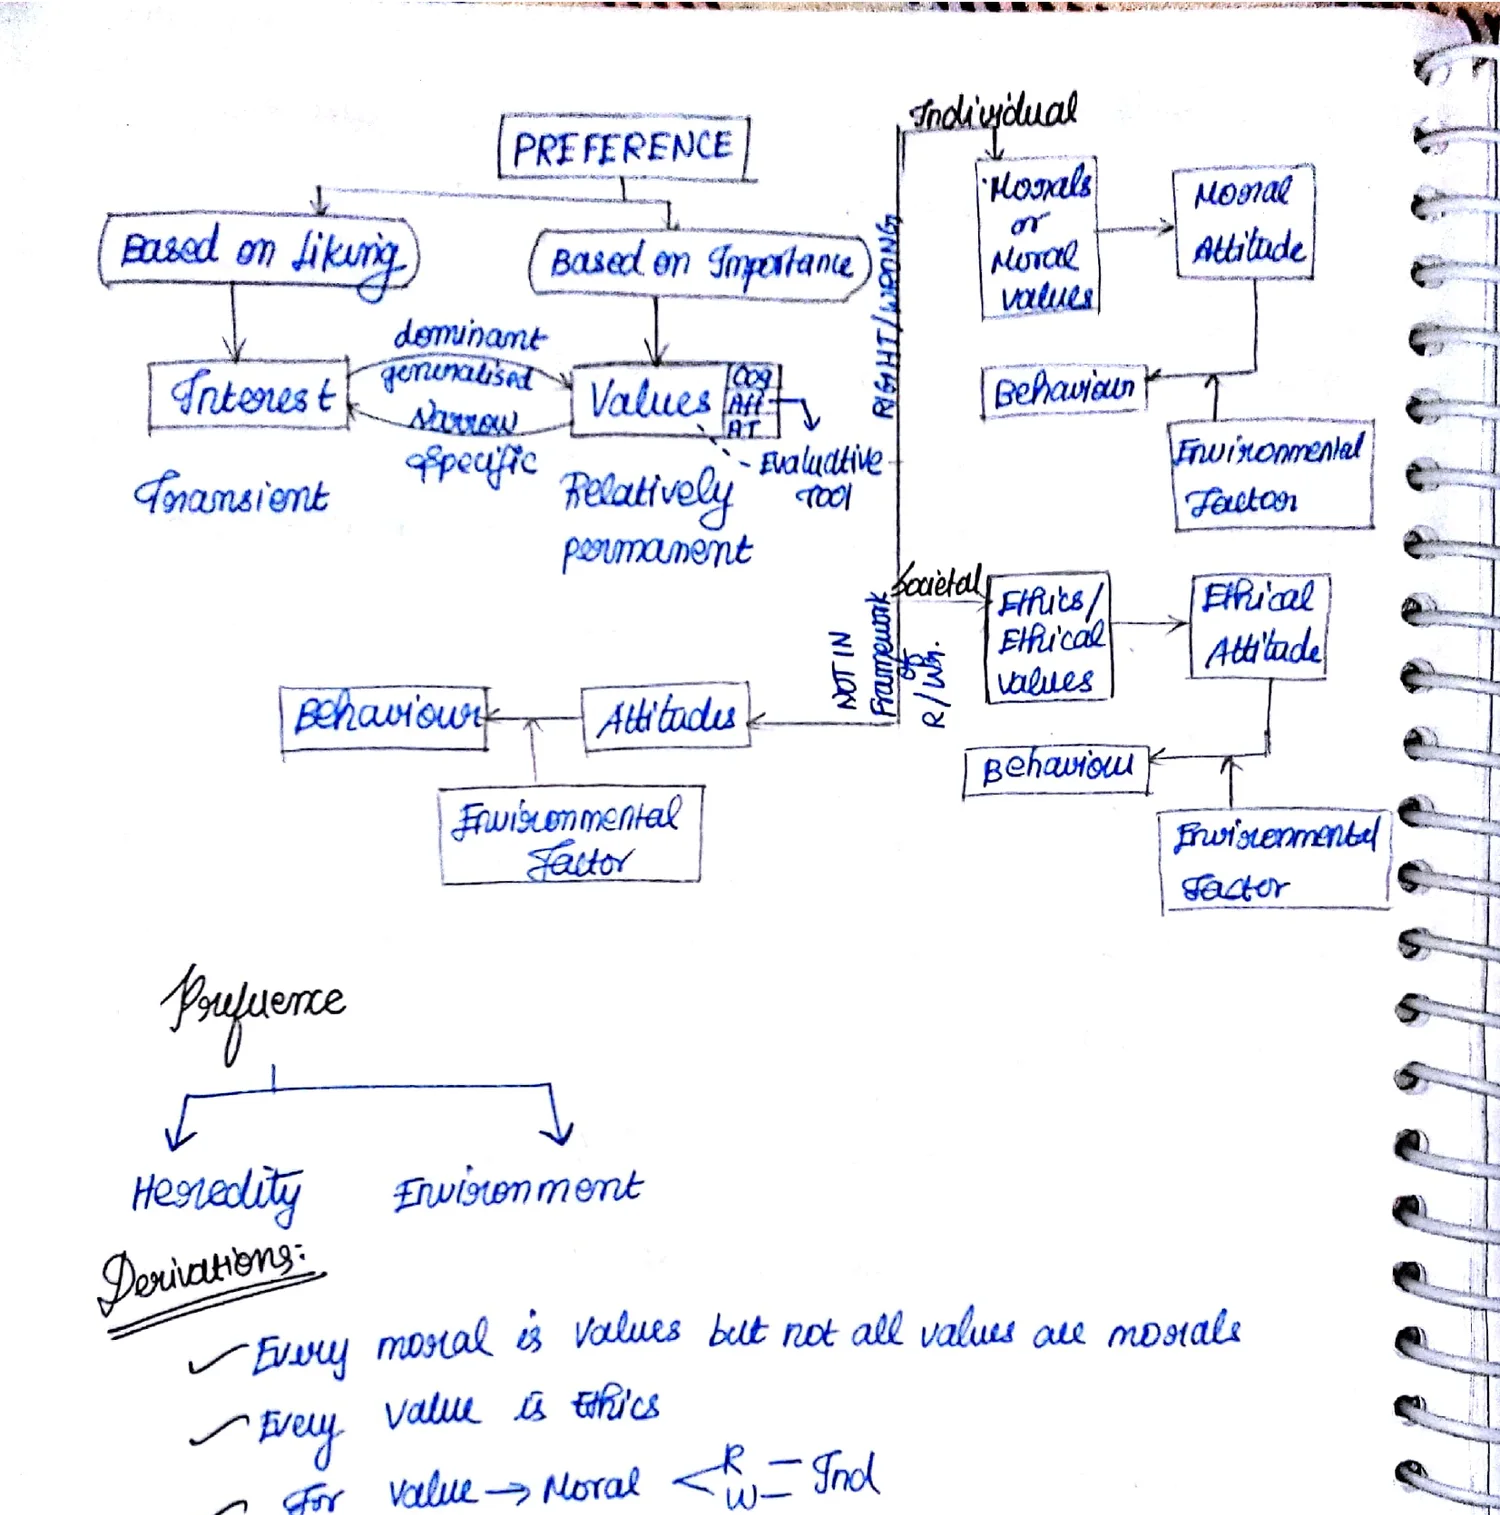 PREFERENCE
Based on Liking
Based on Importance
dominant
generalised
Narrow
Specific
Interest
Transient
Values
Cog
Aff
AT
Evaluative
Tool
Relatively
permanent
RIGHT/WRONG
Individual
Morals
or
Moral
values
Moral
Attitude
Behaviour
Environmental
Factor
Societal
Ethics/
Ethical
values
Ethical
Attitude
Behaviour
Environmental
Factor
NOT IN
Framework
of
R/Wr.
Attitudes
Behaviour
Environmental
Factor
Preference
Heredity Environment
Derivations:
Every moral is values but not all values are morals
Every value is Ethics
For value → Moral < R W = Ind